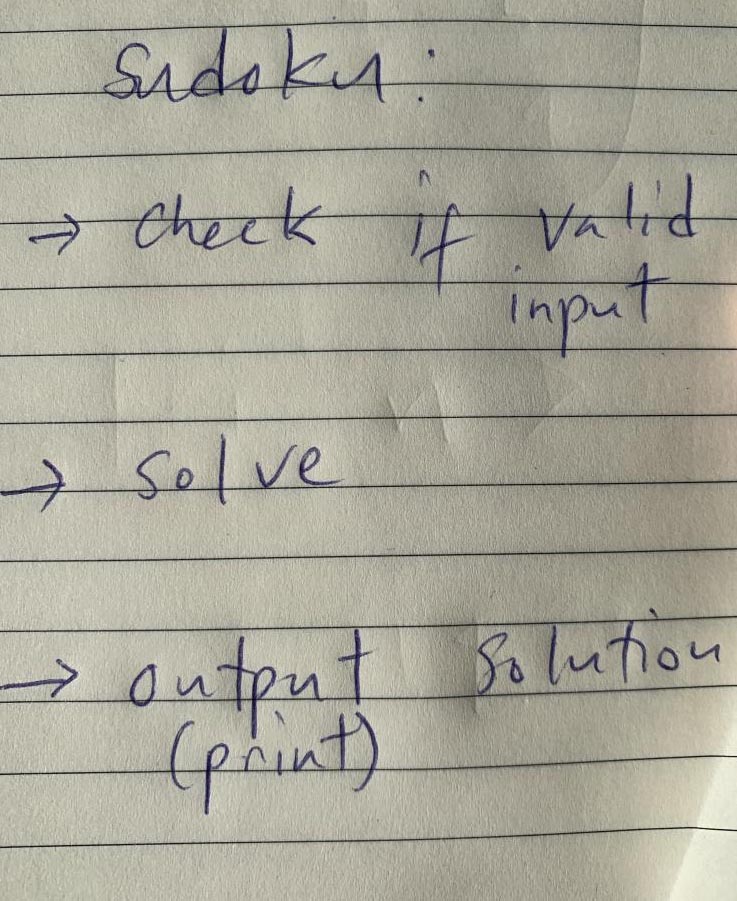 Sudoku:
→ Check if valid
input
→ Solve
→ output solution
(print)